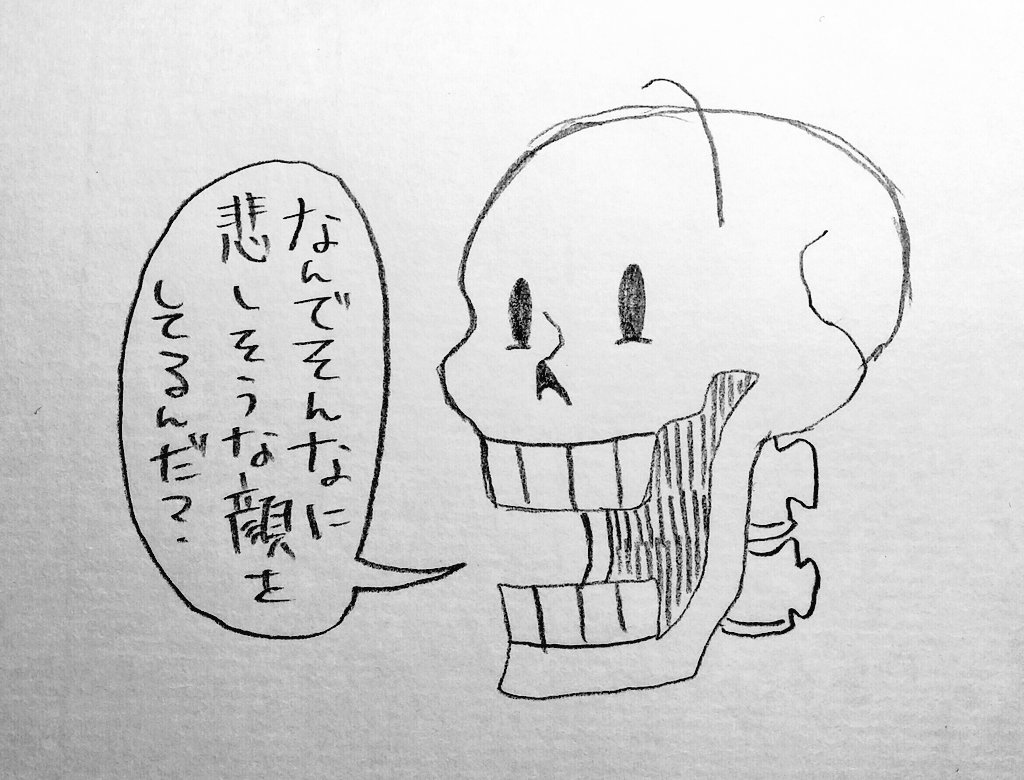 なんでそんなに
悲しそうな顔を
してるんだ?